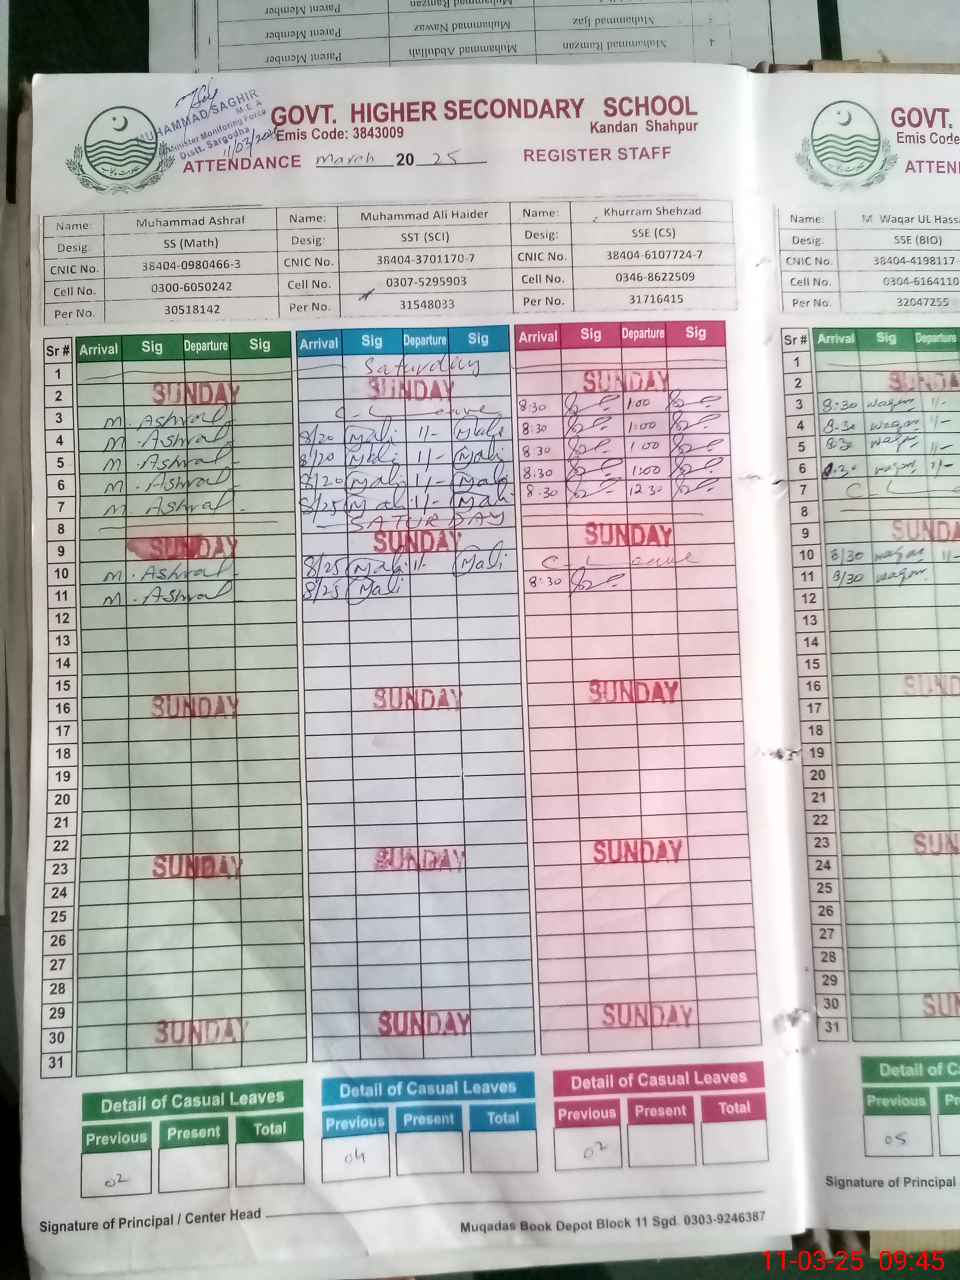 Parent Member
Muhammad Nawaz
Muhammad Ijaz
Parent Member
Muhammad Abdullah
Muhammad Ramzan
MUHAMMAD SAGHIR
M.E.A
Minister Monitoring Force
Distt. Sargodha
GOVT. HIGHER SECONDARY SCHOOL
Emis Code: 3843009 Kandan Shahpur
ATTENDANCE March 2025 REGISTER STAFF
Name: Muhammad Ashraf Name: Muhammad Ali Haider Name: Khurram Shehzad
Desig: SS (Math) Desig: SST (SCI) Desig: SSE (CS)
CNIC No. 38404-0980466-3 CNIC No. 38404-3701170-7 CNIC No. 38404-6107724-7
Cell No. 0300-6050242 Cell No. 0307-5295903 Cell No. 0346-8622509
Per No. 30518142 Per No. 31548033 Per No. 31716415
Sr # Arrival Sig Departure Sig Arrival Sig Departure Sig Arrival Sig Departure Sig
1 Saturday
2 SUNDAY SUNDAY SUNDAY
3 M. Ashraf C-L eave 8:30 1:00
4 M. Ashraf 8/20 Mali 1/- Mali 8:30 1:00
5 M. Ashraf 8/20 Mali 1/- Mali 8:30 1:00
6 M. Ashraf 8/20 Mali 1/- Mali 8:30 1:00
7 M. Ashraf 8/25 Mali 1/- Mali 8:30 12 30
8 SATURDAY
9 SUNDAY SUNDAY SUNDAY
10 M. Ashraf 8/25 Mali 1/- Mali C-L eave
11 M. Ashraf 8/25 Mali 8:30
12
13
14
15
16 SUNDAY SUNDAY SUNDAY
17
18
19
20
21
22
23 SUNDAY SUNDAY SUNDAY
24
25
26
27
28
29
30 SUNDAY SUNDAY SUNDAY
31
Detail of Casual Leaves Detail of Casual Leaves Detail of Casual Leaves
Previous Present Total Previous Present Total Previous Present Total
02 04 02
Signature of Principal / Center Head
Muqadas Book Depot Block 11 Sgd. 0303-9246387
GOVT.
Emis Code
Name: M Waqar UL Hass
Desig: SSE (BIO)
CNIC No. 38404-4198117-
Cell No. 0304-6164110
Per No. 32047255
Sr # Arrival Sig Departure
1
2 SUNDA
3 8:30 waqar 1/-
4 8:30 waqar 1/-
5 8:30 waqar 1/-
6 8:30 waqar 1/-
7 C-L
8
9 SUNDA
10 8/30 waqar 1/-
11 8/30 waqar
12
13
14
15
16 SUND
17
18
19
20
21
22
23 SUN
24
25
26
27
28
29
30 SUN
31
Detail of Ca
Previous Pr
05
Signature of Principal
11-03-25 09:45